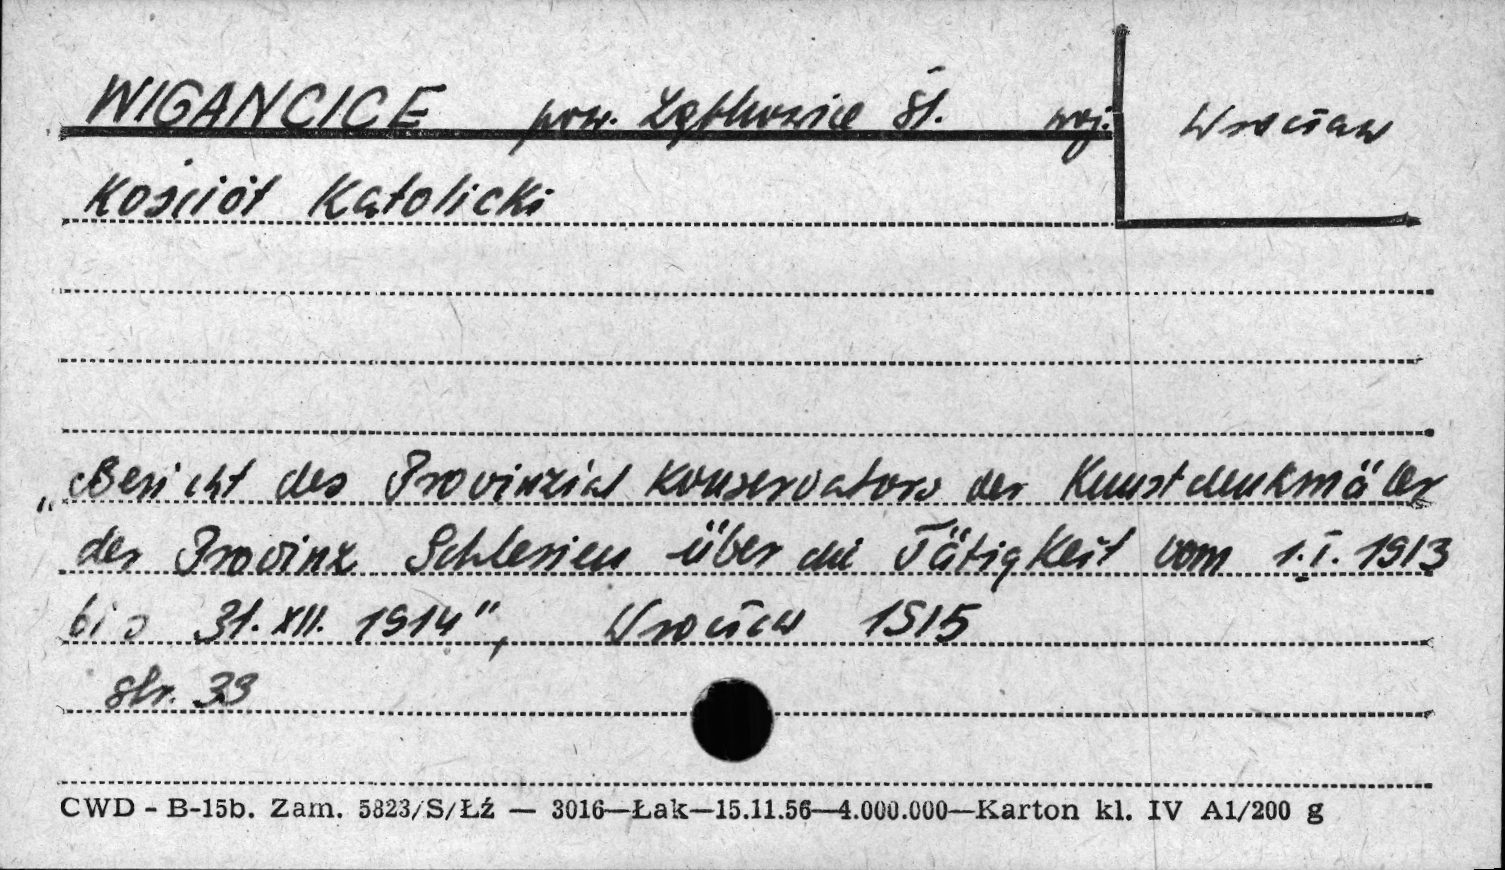 WIGANCICE pow. Ząbkowice Śl. woj. Wrocław
Kościół Katolicki
„Bericht des Provinzial Konservators der Kunstdenkmäler
der Provinz Schlesien über die Tätigkeit vom 1.I.1913
bis 31.XII.1914", Wrocław 1915
str. 33
CWD - B-15b. Zam. 5823/S/Łź — 3016—Łak—15.11.56—4.000.000—Karton kl. IV A1/200 g